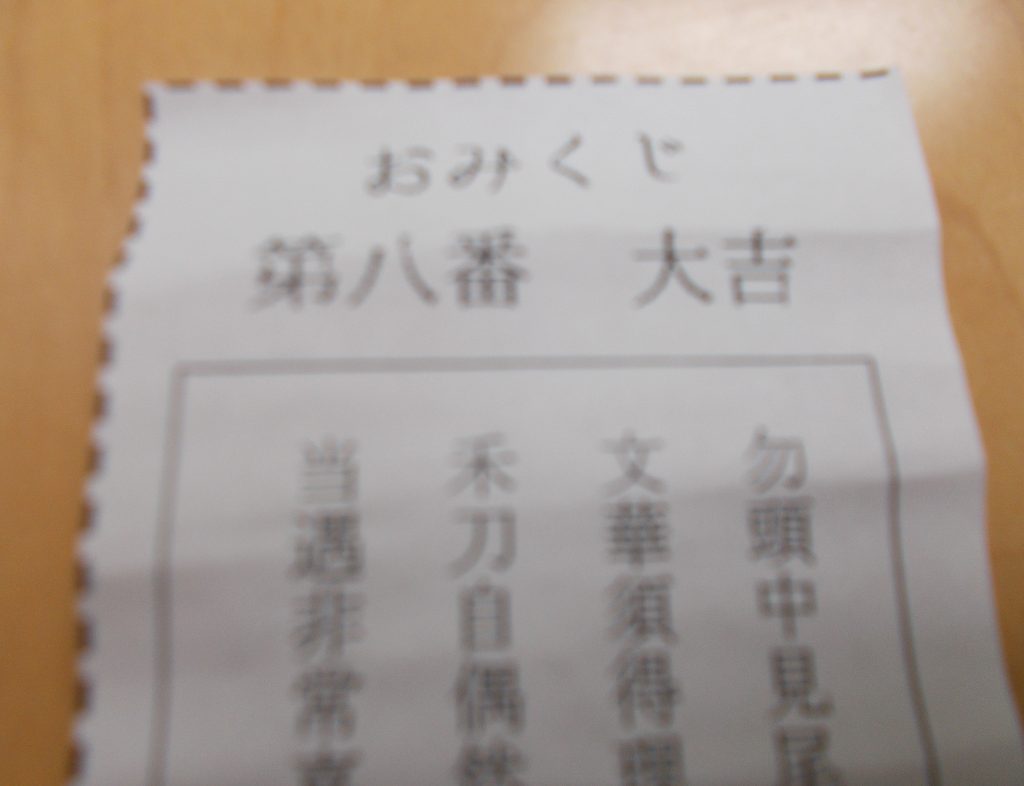 おみくじ
第八番　大吉
勿頭中見尾
文華須得理
禾刀自偶然
当遇非常